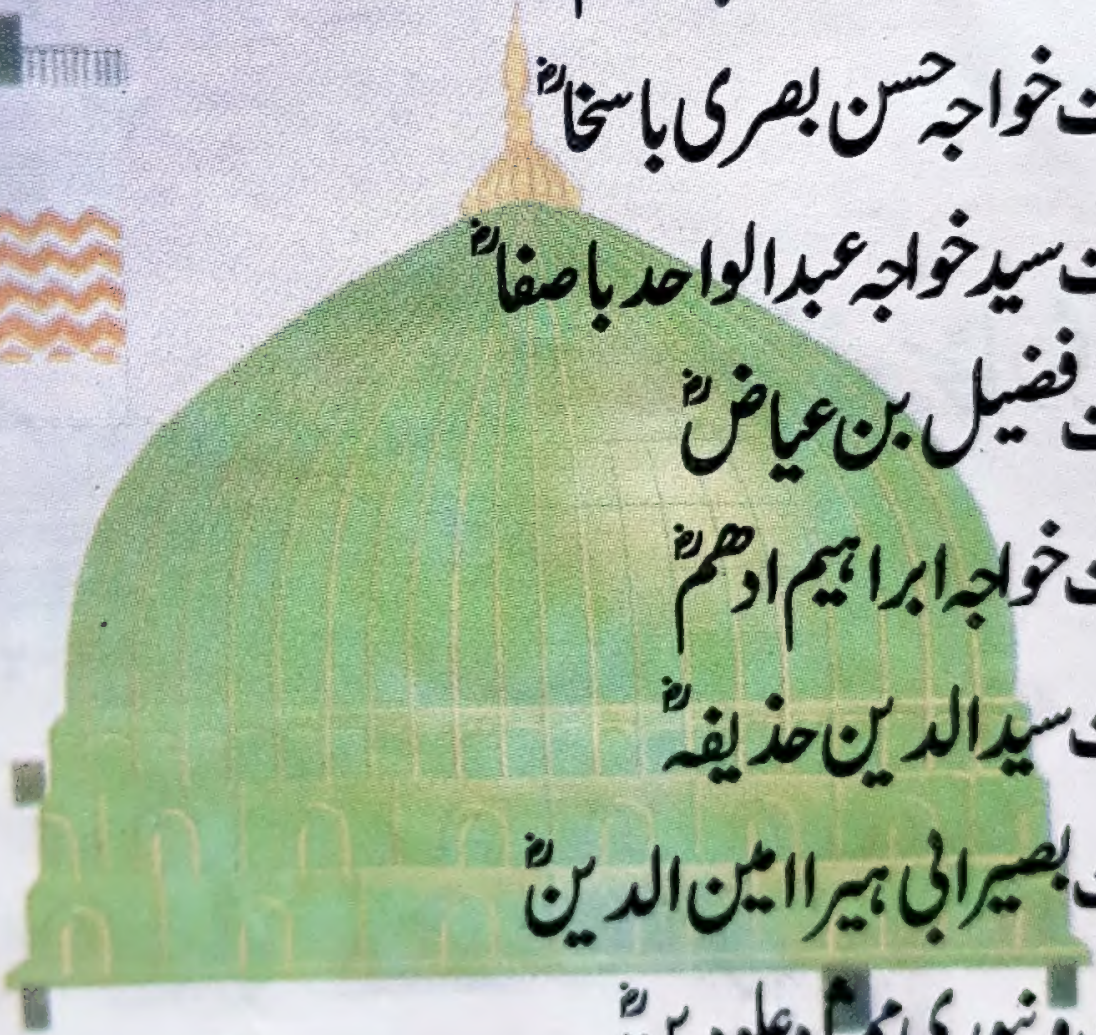 ت خواجہ حسن بصری باسخاؓ
ت سید خواجہ عبدالواحد باصفاؓ
ت فضیل بن عیاضؓ
ت خواجہ ابراہیم ادھمؓ
ت سیدالدین حذیفہؓ
ت بصیرابی ہیرا امین الدینؓ